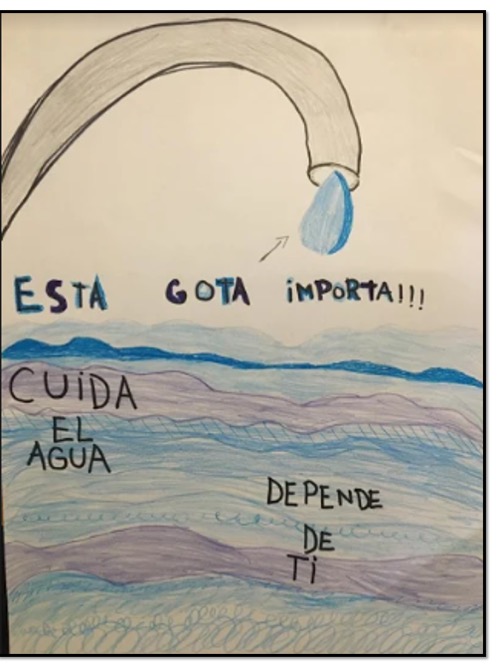 ESTA GOTA iMPORTA!!!
CUiDA
EL
AGUA
DEPENDE
DE
Ti